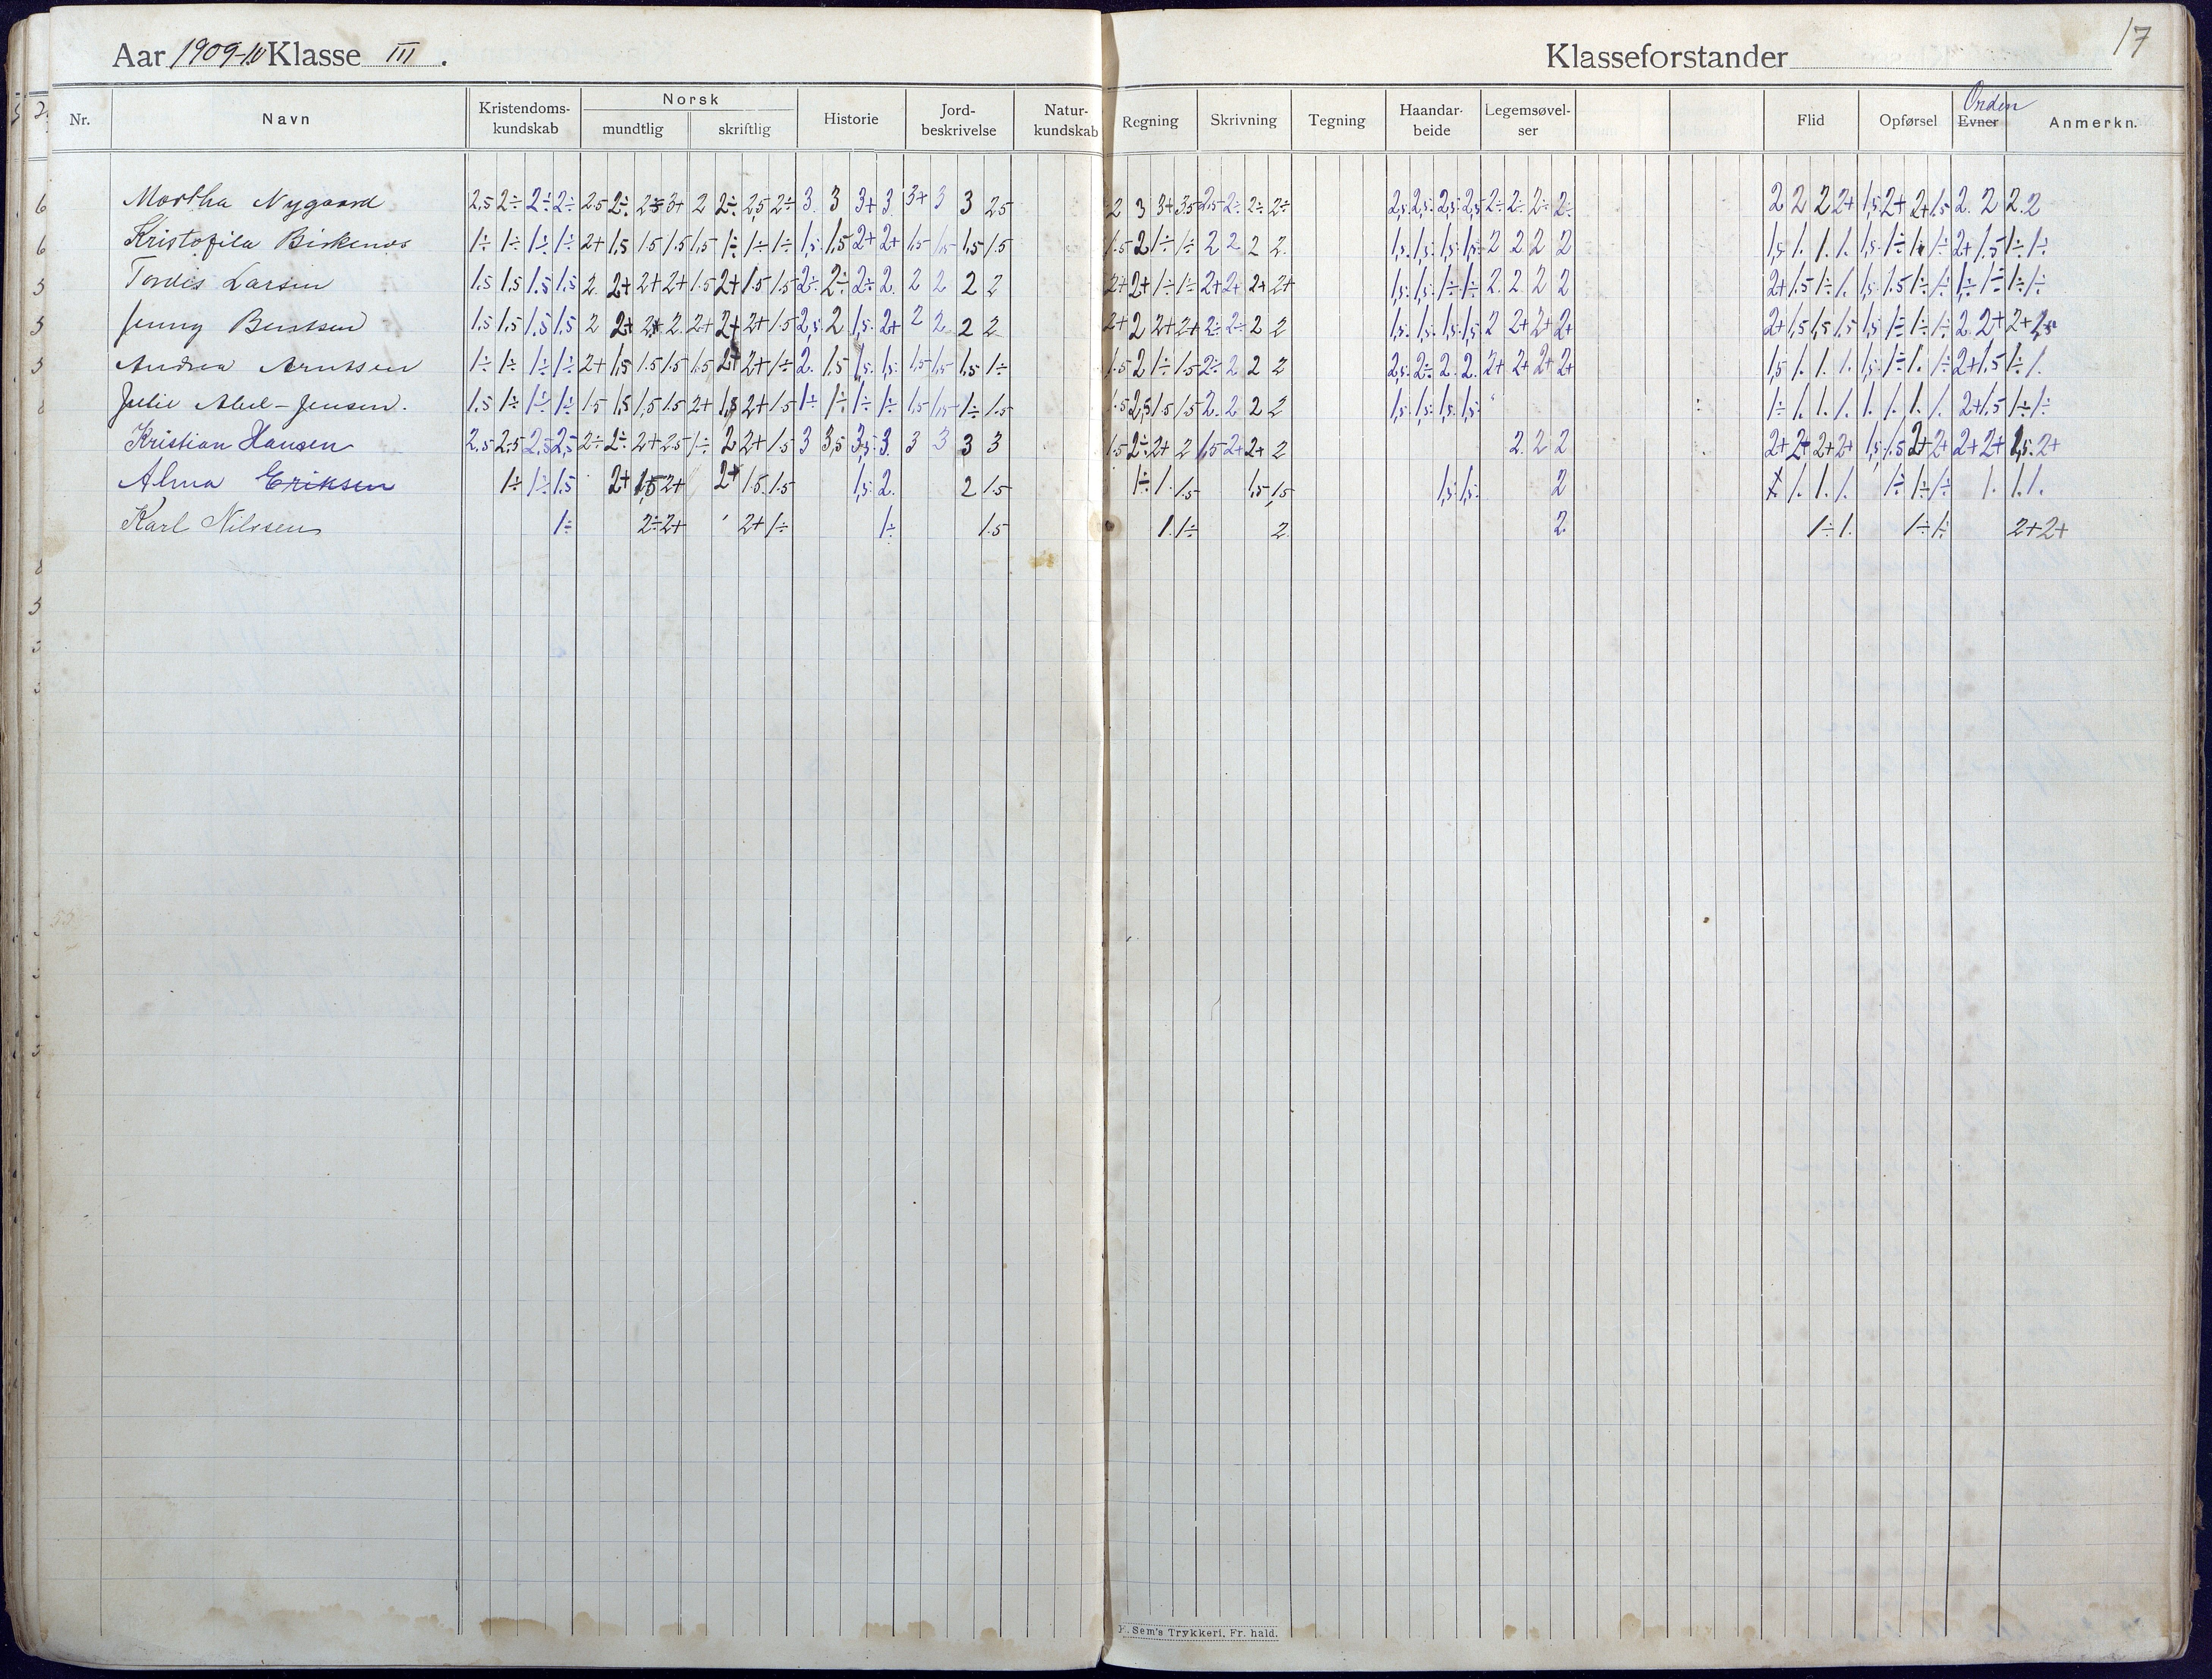 Aar 1909-10 Klasse III.
Klasseforstander
17
Nr. Navn Kristendoms-kundskab Norsk mundtlig skriftlig Historie Jord-beskrivelse Natur-kundskab Regning Skrivning Tegning Haandar-beide Legemsøvel-ser Flid Opførsel Evner Orden Anmerkn.
Martha Nygaard 2,5 2÷ 2÷ 2÷ 2.5 2÷ 3+ 2 2÷ 2,5 2÷ 3. 3 3+ 3. 3+ 3 3 2.5 2 3 3+ 3.5 2,5 2÷ 2÷ 2÷ 2,5. 2,5. 2,5. 2,5 2÷ 2÷ 2÷ 2÷ 2 2 2 2+ 1,5 2+ 2+ 1.5 2. 2 2. 2
Kristofila 1÷ 1÷ 1÷ 1÷ 2+ 1,5 1.5 1.5 1.5 1÷ 1÷ 1÷ 1,5. 1,5 2+ 2+ 1,5 1,5 1,5 1.5 1.5 2 1÷ 1÷ 2 2 2 2. 1,5. 1,5. 1,5. 1,5. 2 2 2 2 1,5 1. 1. 1. 1,5. 1÷ 1. 1÷ 2+ 1.5 1÷ 1÷
Tordis Larsen 1.5 1.5 1.5 1.5 2. 2+ 2+ 2+ 1.5 2+ 1.5 1.5 2÷ 2÷ 2÷ 2. 2 2 2 2 2+ 2+ 1÷ 1÷ 2+ 2+ 2+ 2+ 1,5. 1,5. 1÷ 1÷ 2. 2. 2 2 2+ 1.5 1÷ 1. 1,5. 1.5 1÷ 1÷ 1÷ 1÷ 1÷ 1÷
Jenny 1.5 1.5 1.5 1.5 2 2+ 2+ 2. 2+ 2+ 2+ 1.5 2,5. 2 1,5. 2+ 2 2 2 2 2+ 2 2+ 2+ 2÷ 2÷ 2 2 1,5. 1,5. 1,5. 1,5 2 2+ 2+ 2+ 2+ 1,5 1,5 1.5 1,5 1÷ 1÷ 1÷ 2. 2+ 2+
Andrea Arntsen 1÷ 1÷ 1÷ 1÷ 2+ 1,5 1.5 1.5 1.5 2+ 2+ 1÷ 2. 1,5 1,5. 1,5. 1,5 1,5 1,5 1÷ 1.5 2 1÷ 1.5 2÷ 2 2 2 2,5. 2÷ 2. 2. 2+ 2+ 2+ 2+ 1,5 1. 1. 1. 1,5. 1÷ 1. 1÷ 2+ 1,5 1÷ 1.
Julie Abel-Jensen. 1,5 1÷ 1÷ 1÷ 1.5 1,5 1,5 1.5 2+ 1,5 2+ 1.5 1÷ 1÷ 1÷ 1÷ 1,5 1,5 1÷ 1.5 1.5 2,5 1.5 1.5 2. 2 2 2 1,5. 1,5. 1,5. 1,5. 1÷ 1. 1. 1. 1. 1. 1. 1. 2+ 1.5 1÷ 1÷
Kristian Hansen 2.5 2.5 2.5 2,5 2÷ 2÷ 2+ 2.5 1÷ 2 2+ 1.5 3 3,5 3,5. 3. 3 3 3 3 1.5 2÷ 2+ 2 1,5 2+ 2+ 2 2. 2 2 2+ 2+ 2+ 2+ 1,5 1.5 2+ 2+ 2+ 2+ 1,5. 2+
Alma Eriksen 1÷ 1÷ 1.5 2+ 1,5 2+ 2+ 1.5. 1.5 1,5. 2. 2 1.5 1÷ 1. 1.5 1,5 1,5 1,5. 1,5. 2 1. 1. 1. 1÷ 1÷ 1÷ 1. 1. 1.
Karl Nilssen 1÷ 2÷ 2+ 2+ 1÷ 1÷ 1.5 1. 1÷ 2. 2. 1÷ 1. 1÷ 1÷ 2+ 2+
6
6
5
5
5
Sem's Trykkeri, Fr. hald.